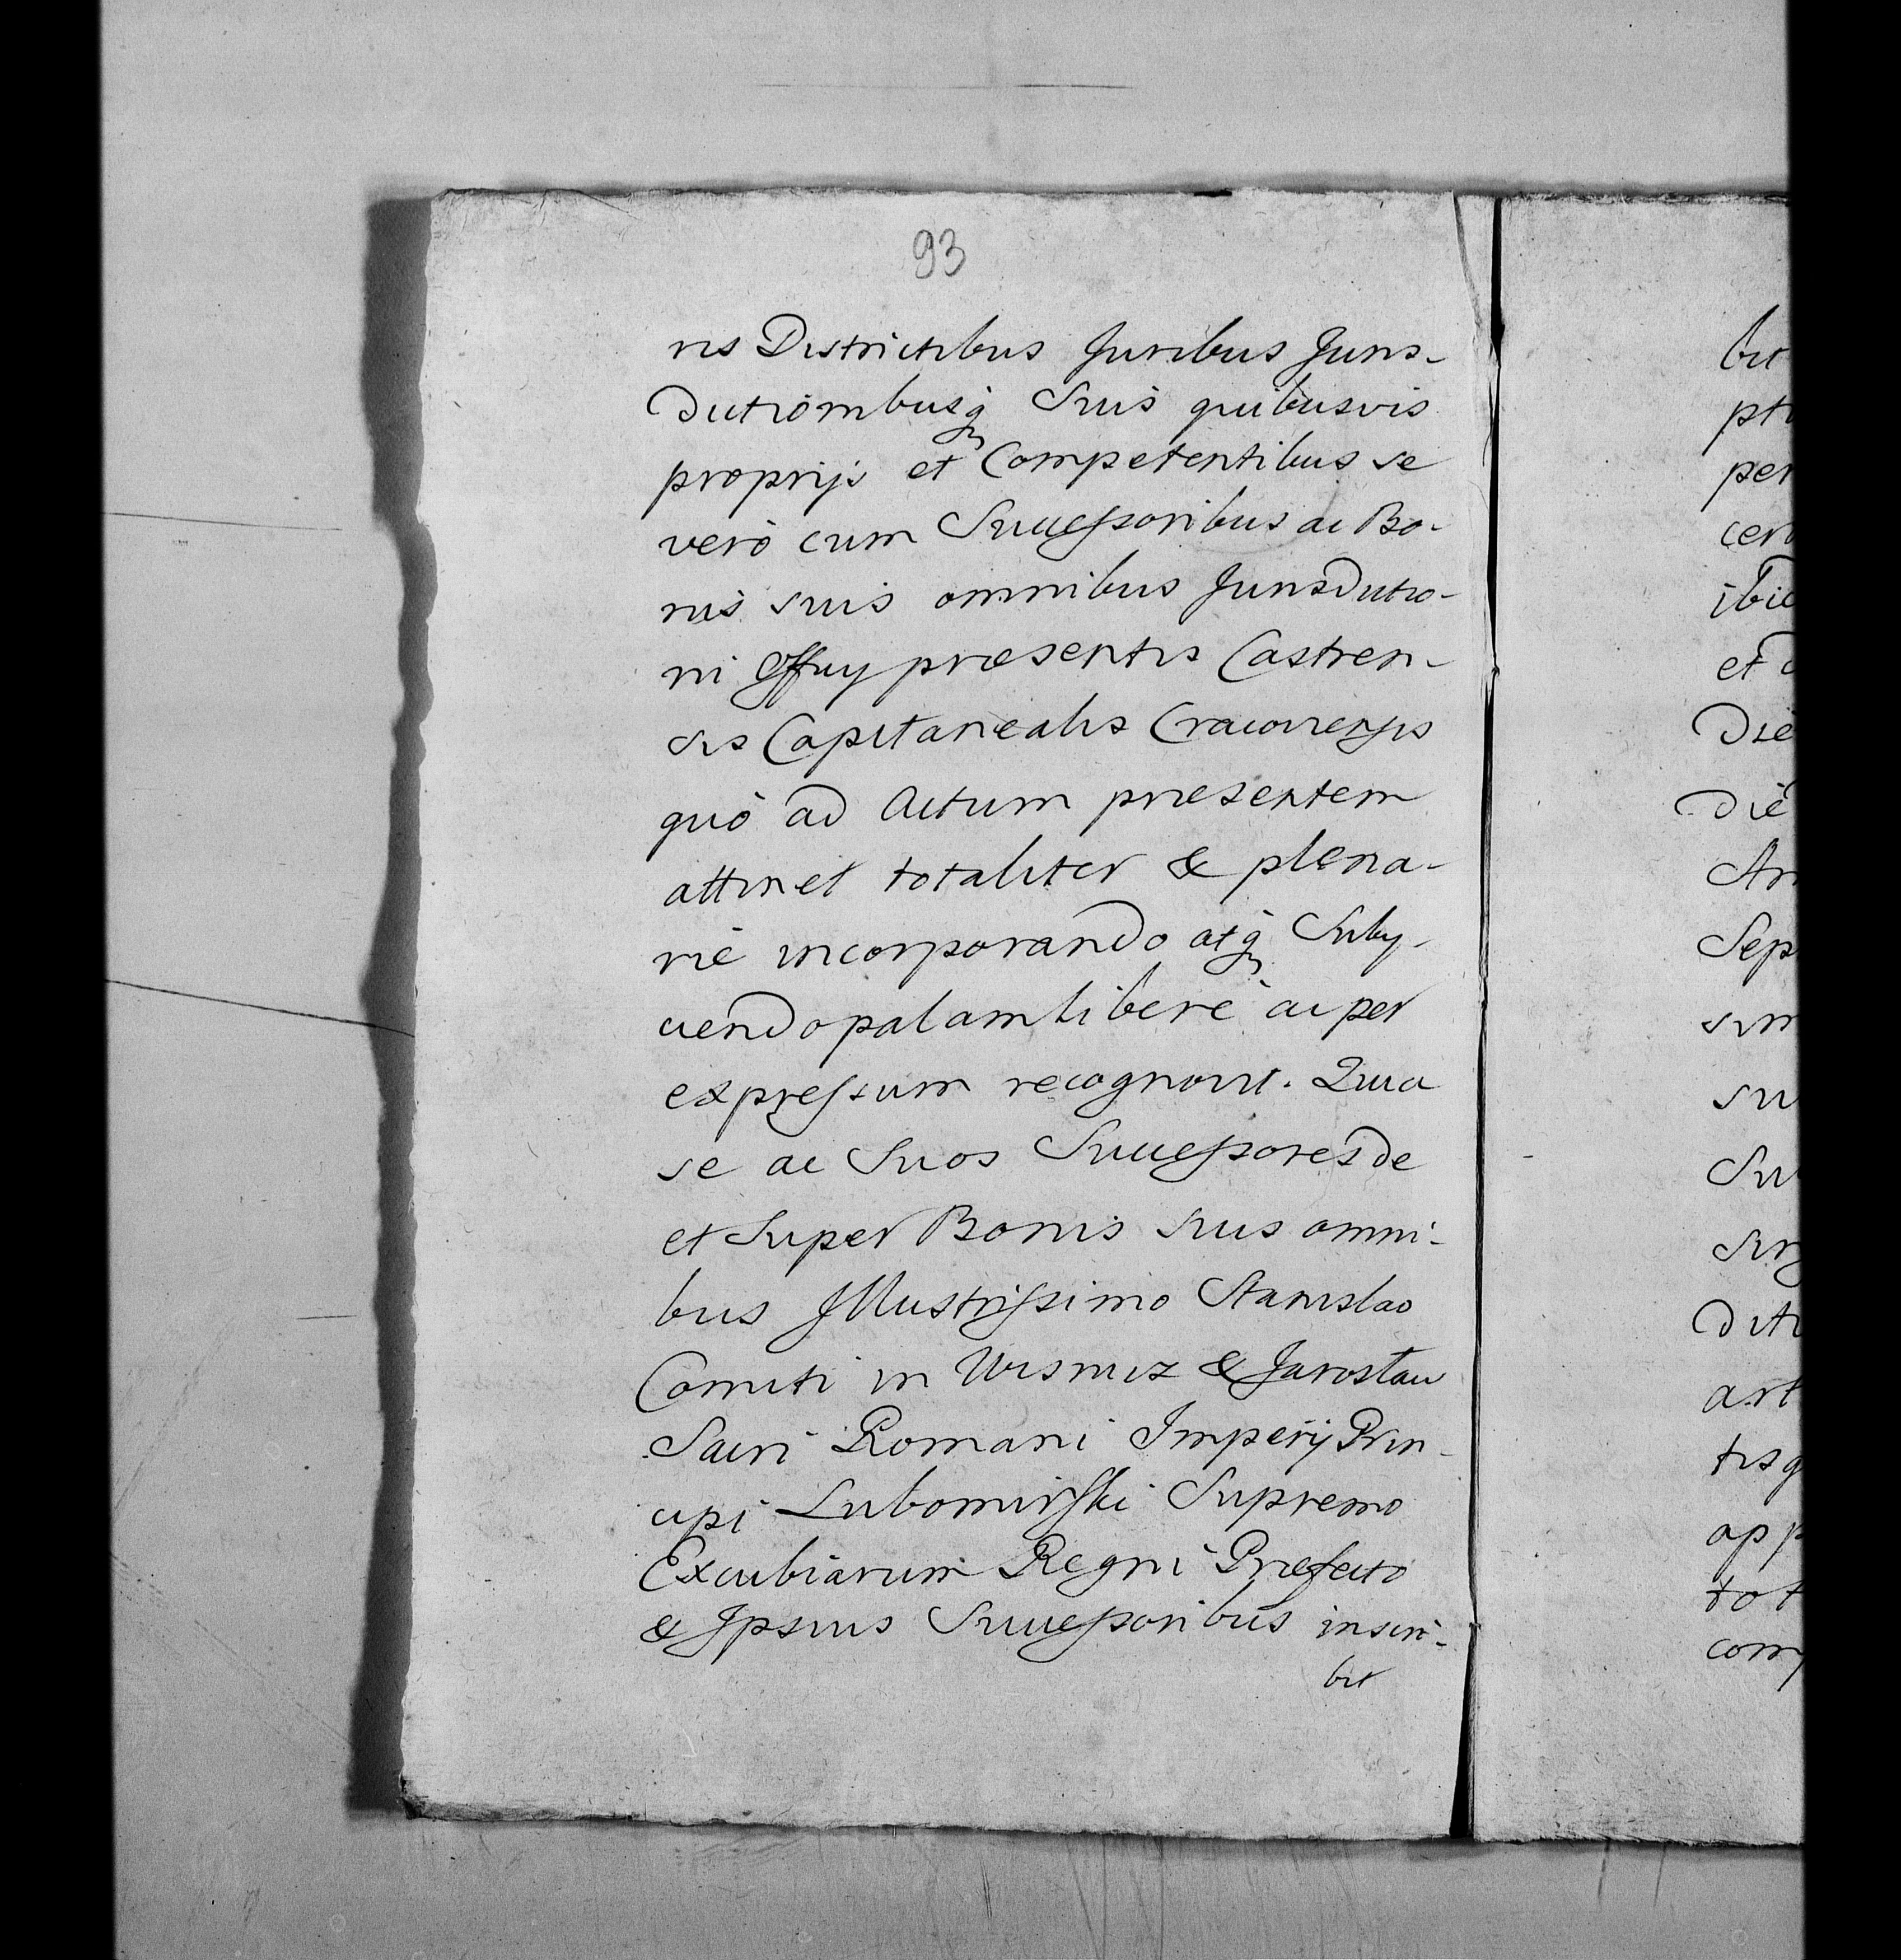 93
ris Districtibus Juribus Juris-
dictionibusq̃ Suis quibusvis
proprijs et Competentibus se
verò cum Successoribus ac Bo-
nis suis omnibus Jurisdictio-
ni Officij præsentis Castren-
sis Capitanealis Cracoviensis
quò ad Actum præsentem
attinet totaliter & plena-
riè incorporando atq̃ Subij-
ciendo palam liberè ac per
expressum recognovit. Quia
se ac Suos Successores de
et Super Bonis suis omni-
bus Illustrissimo Stanislao
Comiti in Wisnicz & Jarosław
Sacri Romani Imperij Prin-
cipi Lubomirski Supremo
Excubiarum Regni Præfecto
& Ipsius Successoribus inscri-
bit
bit
per
et
Die
die
Sep
art
tot